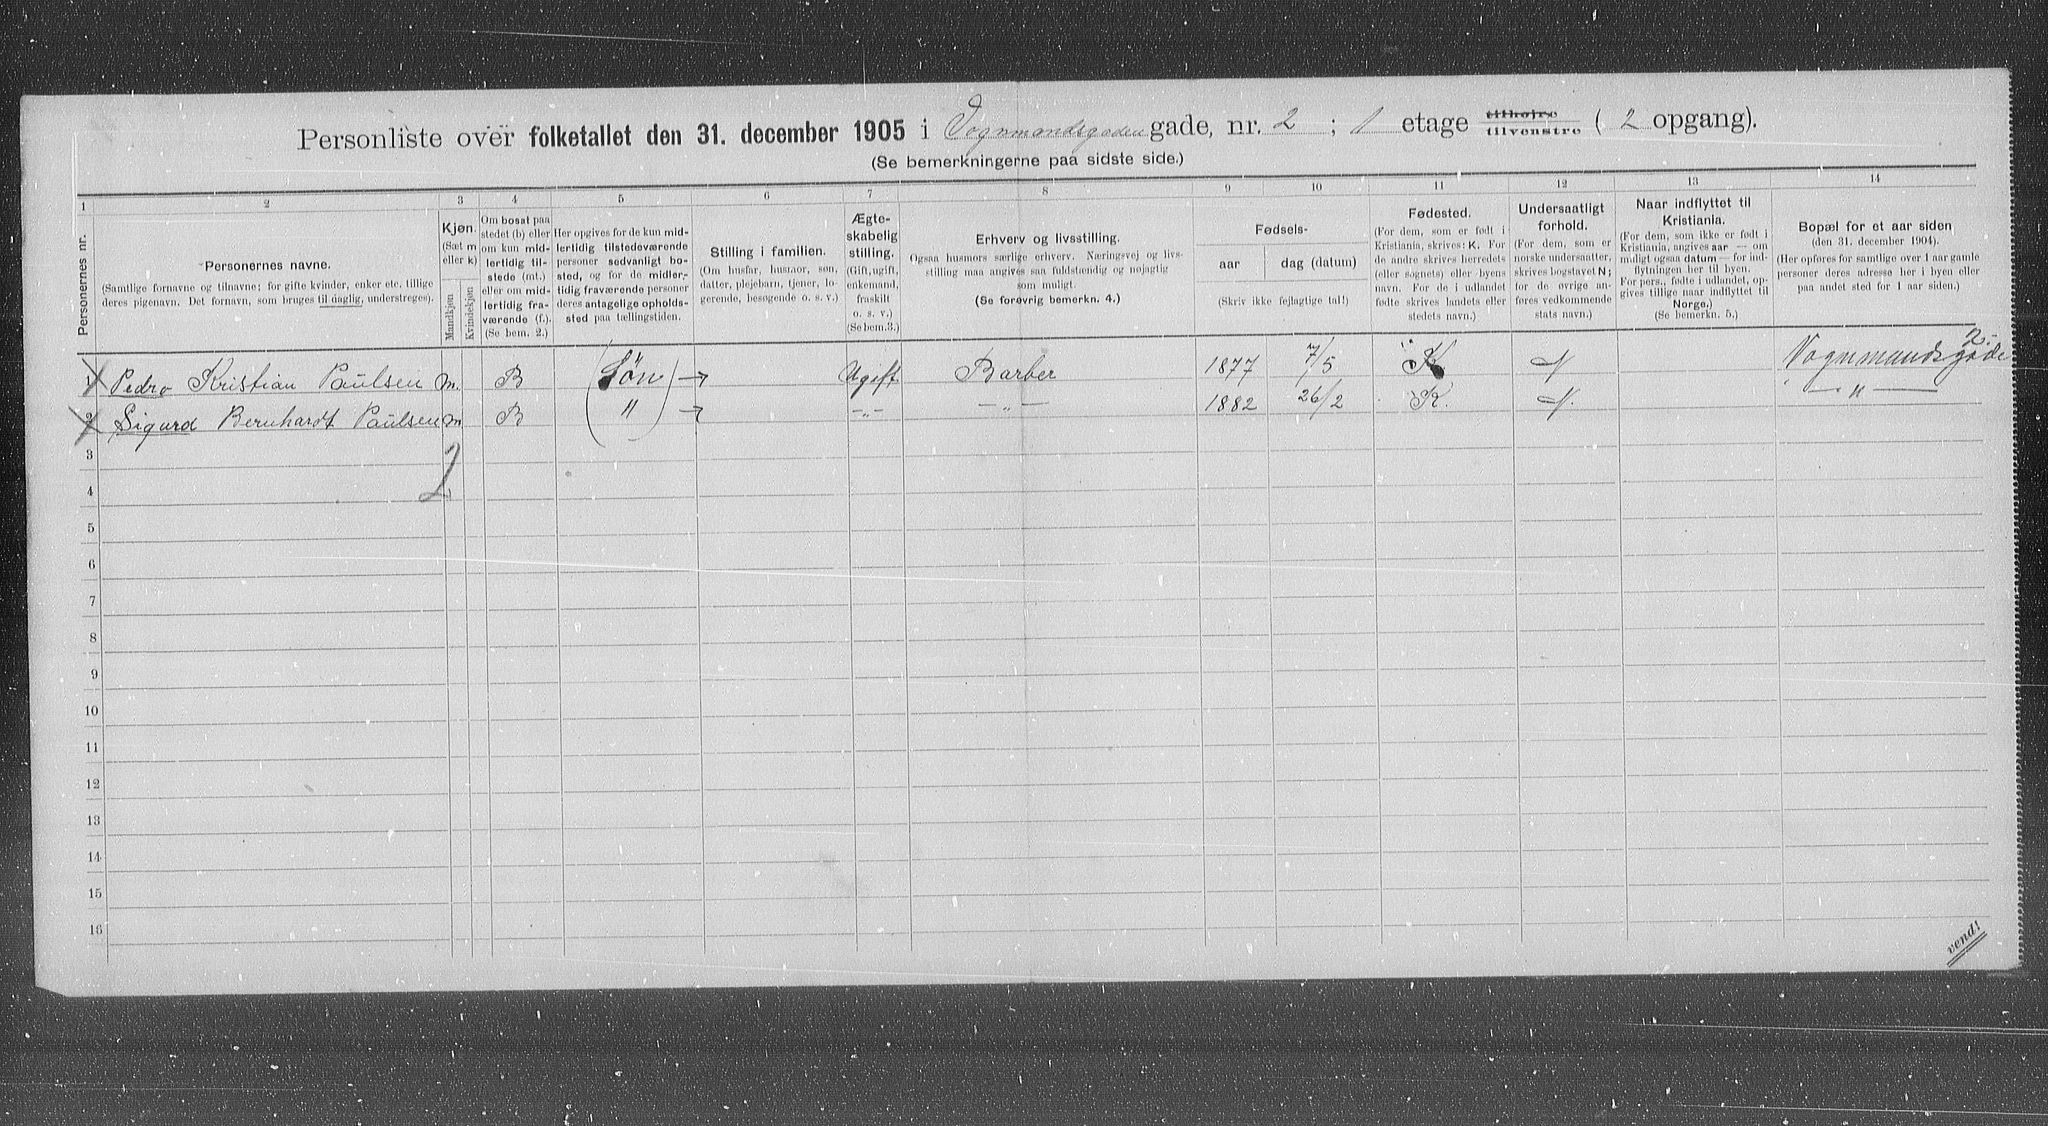 Personliste over folketallet den 31. december 1905 i Vognmandsgaden gade, nr. 2 ; 1 etage tilhøjre tilvenstre ( 2 opgang).
(Se bemerkningerne paa sidste side.)
1 2 3 4 5 6 7 8 9 10 11 12 13 14
Personernes nr.
Personernes navne.
(Samtlige fornavne og tilnavne; for gifte kvinder, enker etc. tillige
deres pigenavn. Det fornavn, som bruges til daglig, understreges).
Kjøn.
(Sæt m
eller k)
Mandkjøn
Kvindekjøn
Om bosat paa
stedet (b) eller
om kun mid-
lertidig til-
stede (mt.)
eller om mid-
lertidig fra-
værende (f.).
(Se bem. 2.)
Her opgives for de kun mid-
lertidig tilstedeværende
personer sedvanligt bo-
sted, og for de midler-
tidig fraværende personer
deres antagelige opholds-
sted paa tællingstiden.
Stilling i familien.
(Om husfar, husmor, søn,
datter, plejebarn, tjener, lo-
gerende, besøgende o. s. v.)
Ægte-
skabelig
stilling.
(Gift, ugift,
enkemand,
fraskilt
o. s. v.)
(Se bem.3.)
Erhverv og livsstilling.
Ogsaa husmors særlige erhverv. Næringsvej og livs-
stilling maa angives saa fuldstændig og nøjagtig
som muligt.
(Se forøvrig bemerkn. 4.)
Fødsels-
aar
dag (datum)
(Skriv ikke fejlagtige tal!)
Fødested.
(For dem, som er født i
Kristiania, skrives: K. For
de andre skrives herredets
(eller sognets) eller byens
navn. For de i udlandet
fødte skrives landets eller
stedets navn.)
Undersaatligt
forhold.
(For dem, som er
norske undersaatter,
skrives bogstavet N;
for de øvrige an-
føres vedkommende
stats navn.)
Naar indflyttet til
Kristiania.
(For dem, som ikke er født i
Kristiania, angives aar — om
muligt ogsaa datum — for ind-
flytningen her til byen.
For pers., fødte i udlandet, op-
gives tillige naar indflyttet til
Norge.)
(Se bemerkn. 5.)
Bopæl for et aar siden
(den 31. december 1904).
(Her opføres for samtlige over 1 aar gamle
personer deres adresse her i byen eller
paa andet sted for 1 aar siden.)
1 Pedro Kristian Paulsen m. B (Søn) Ugift Barber 1877 7/5 K N Vognmandsgade 2.
2 Sigurd Bernhardt Paulsen m B " -"- -"- 1882 26/2 K. N. -"-
3
2
4
5
6
7
8
9
10
11
12
13
14
15
16
vend!